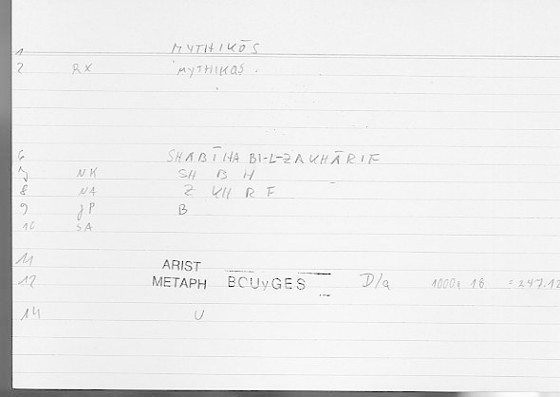 1 MYTHIKŌS
2 RX MYTHIKOS.
6 SHABĪHA BI-L-ZAKHĀRIF
7 NK SH B H
8 NA Z KH R F
9 JP B
10 SA
11 ARIST
12 METAPH BOUyGES D/a 18 = 247,12
14 U